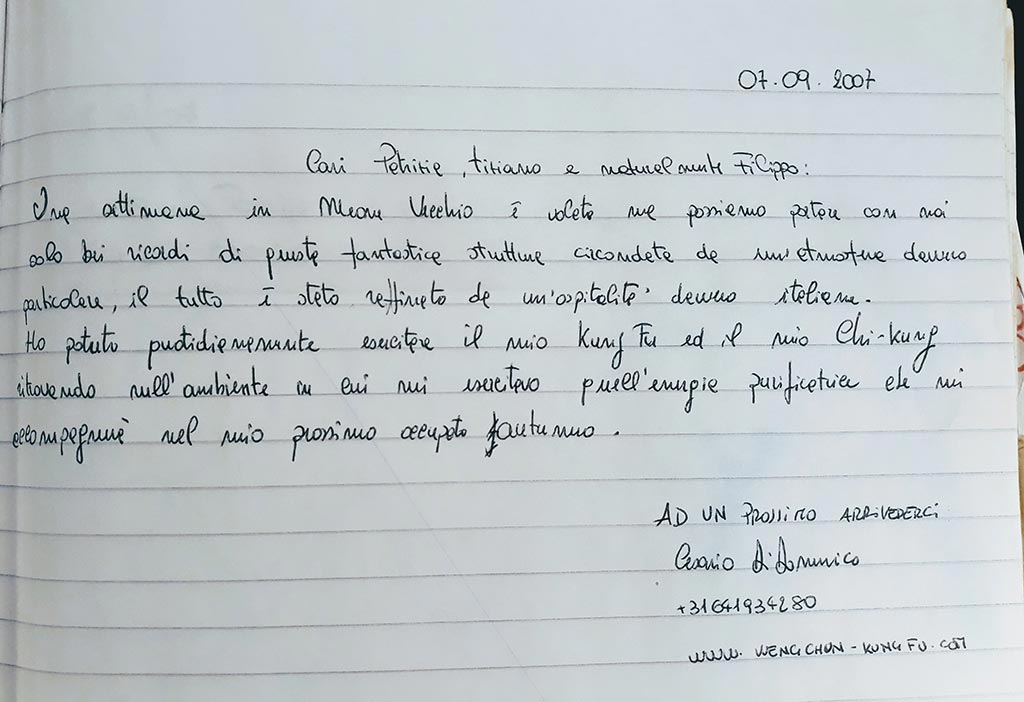 07.09.2007
Cari Patrizie, tiziano e naturalmente Filippo:
Una settimana in Vecchio è volata ma possiamo portare con noi
solo bei ricordi di questa fantastica struttura circondata da un'atmosfera davvero
particolare, il tutto è stato raffinato da un'ospitalità davvero italiana.
Ho potuto quotidianamente esercitare il mio Kung Fu ed il mio Chi-kung
ritrovando nell'ambiente in cui mi esercitavo quell'energia purificatrice che mi
accompagnerà nel mio prossimo occupato autunno.
AD UN PROSSIMO ARRIVEDERCI
Cesario Di Domenico
+31641934280
WWW.WENGCHUN-KUNGFU.COM